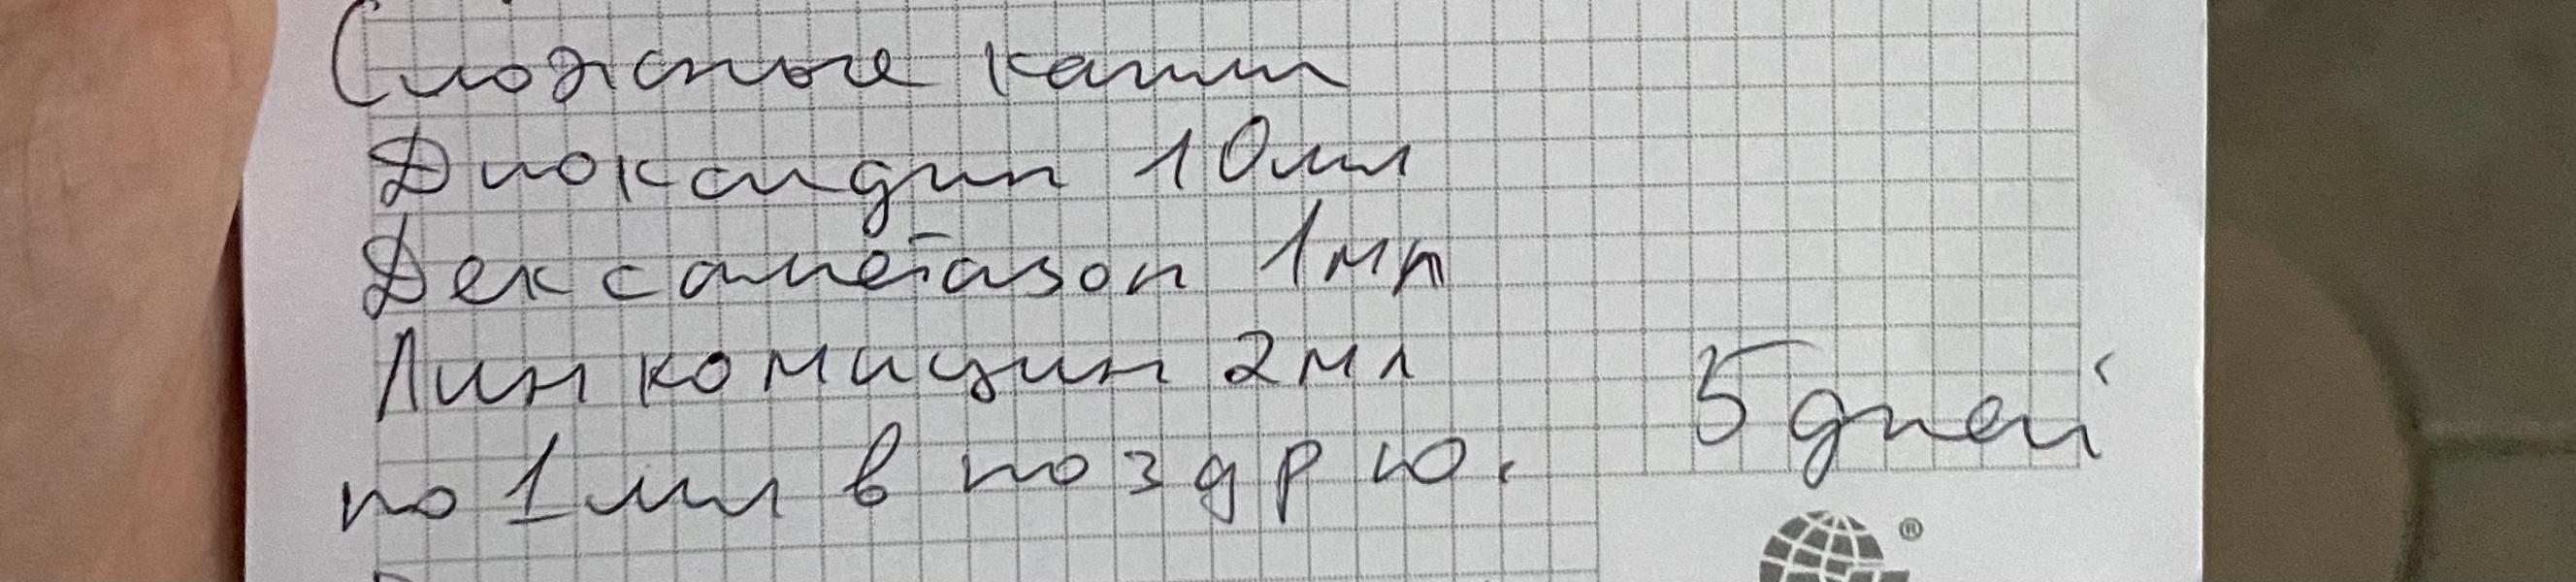 Сложные капли
Диоксидин 10мл
Дексаметазон 1мл
Линкомицин 2мл
по 1мл в ноздрю.
5 дней
®